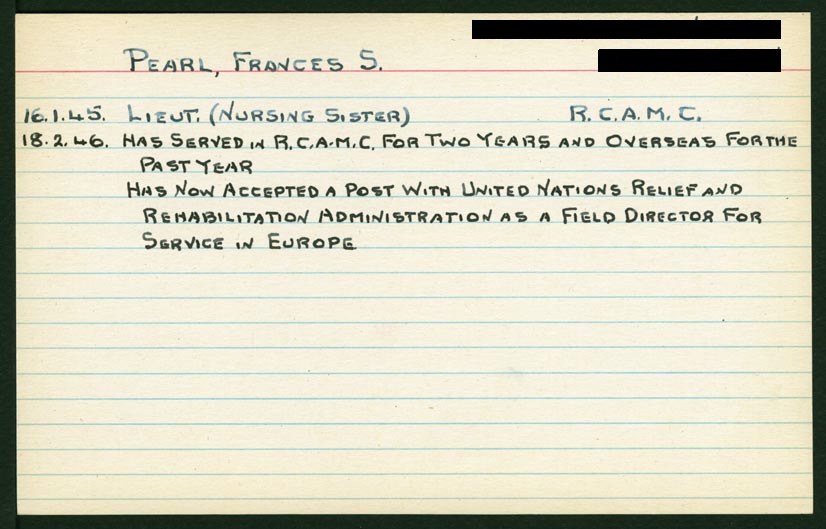 PEARL, FRANCES S.
16.1.45. LIEUT. (NURSING SISTER) R.C.A.M.C.
18.2.46. HAS SERVED IN R.C.A.M.C. FOR TWO YEARS AND OVERSEAS FOR THE
PAST YEAR
HAS NOW ACCEPTED A POST WITH UNITED NATIONS RELIEF AND
REHABILITATION ADMINISTRATION AS A FIELD DIRECTOR FOR
SERVICE IN EUROPE